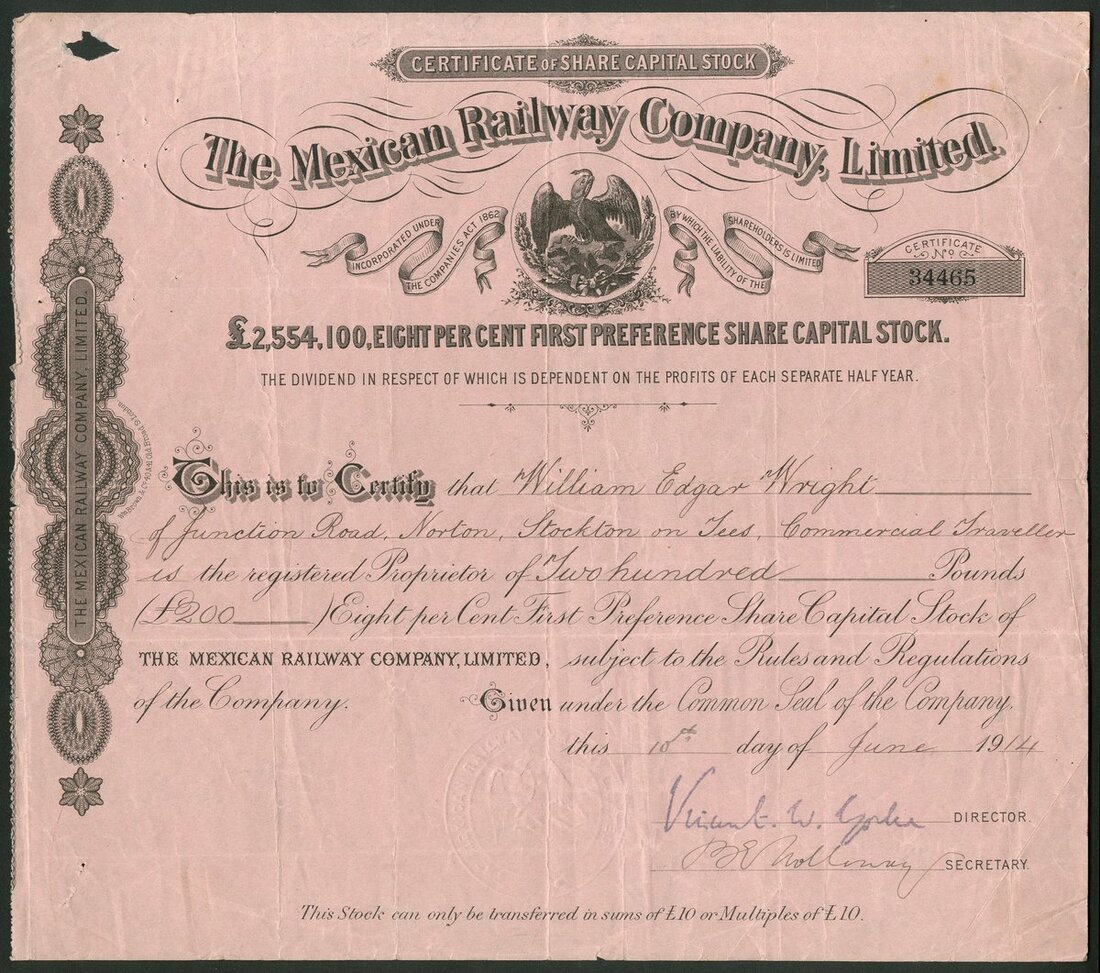 CERTIFICATE OF SHARE CAPITAL STOCK
The Mexican Railway Company, Limited.
INCORPORATED UNDER
THE COMPANIES ACT 1862
BY WHICH THE LIABILITY OF THE
SHAREHOLDERS IS LIMITED
CERTIFICATE
No
34465
£2,554,100, EIGHT PER CENT FIRST PREFERENCE SHARE CAPITAL STOCK.
THE DIVIDEND IN RESPECT OF WHICH IS DEPENDENT ON THE PROFITS OF EACH SEPARATE HALF YEAR.
This is to Certify that William Edgar Wright
of Junction Road, Norton, Stockton on Tees, Commercial Traveller
is the registered Proprietor of Two hundred Pounds
(£200 ) Eight per Cent First Preference Share Capital Stock of
THE MEXICAN RAILWAY COMPANY, LIMITED, subject to the Rules and Regulations
of the Company. Given under the Common Seal of the Company,
this 10th day of June 1914
Vincent W. Yorke DIRECTOR.
Holloway SECRETARY.
This Stock can only be transferred in sums of £10 or Multiples of £10.
THE MEXICAN RAILWAY COMPANY, LIMITED.